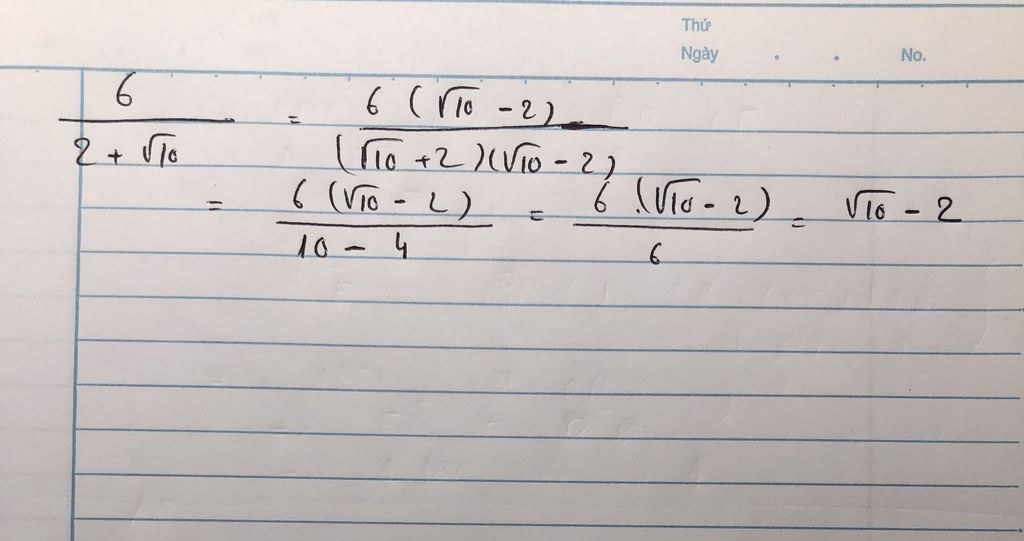 Thứ
Ngày . . No.
6/(2 + √10) = 6 (√10 - 2)/((√10 + 2)(√10 - 2))
= 6 (√10 - 2)/(10 - 4) = 6 .(√10 - 2)/6 = √10 - 2